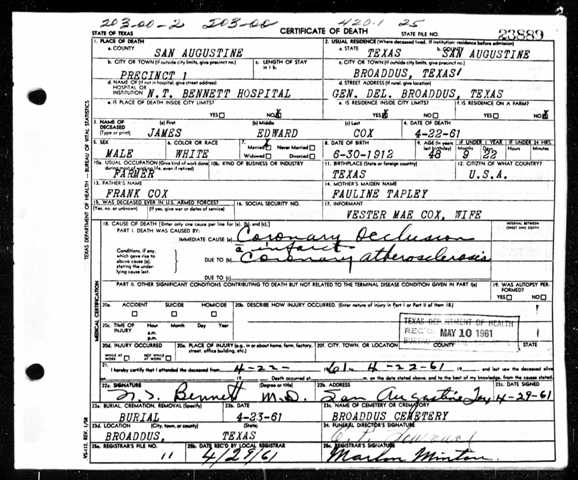 203-00-2 203-00 420.1 25
STATE OF TEXAS CERTIFICATE OF DEATH STATE FILE NO. 23889
1. PLACE OF DEATH 2. USUAL RESIDENCE (Where deceased lived. If institution: residence before admission)
a. COUNTY a. STATE b. COUNTY
SAN AUGUSTINE TEXAS SAN AUGUSTINE
b. CITY OR TOWN (If outside city limits, give precinct no.) c. LENGTH OF STAY in 1 b. c. CITY OR TOWN (If outside city limits, give precinct no.)
PRECINCT 1 BROADDUS, TEXAS
d. NAME OF (If not in hospital, give street address) HOSPITAL OR INSTITUTION d. STREET ADDRESS (If rural, give location)
N.T. BENNETT HOSPITAL GEN. DEL. BROADDUS, TEXAS
e. IS PLACE OF DEATH INSIDE CITY LIMITS? e. IS RESIDENCE INSIDE CITY LIMITS? f. IS RESIDENCE ON A FARM?
YES NO X YES NO X YES NO
3. NAME OF DECEASED (Type or print) (a) First (b) Middle (c) Last 4. DATE OF DEATH
JAMES EDWARD COX 4-22-61
5. SEX 6. COLOR OR RACE 7. Married X Never Married Widowed Divorced 8. DATE OF BIRTH 9. AGE (In years last birthday) IF UNDER 1 YEAR Months Days IF UNDER 24 HRS.
MALE WHITE 6-30-1912 48 9 22
10a. USUAL OCCUPATION (Give kind of work done during most of working life, even if retired) 10b. KIND OF BUSINESS OR INDUSTRY 11. BIRTHPLACE (State or foreign country) 12. CITIZEN OF WHAT COUNTRY?
FARMER TEXAS U.S.A.
13. FATHER'S NAME 14. MOTHER'S MAIDEN NAME
FRANK COX FAULINE TAPLEY
15. WAS DECEASED EVER IN U.S. ARMED FORCES? (Yes, no, or unknown) (If yes, give war or dates of service) 16. SOCIAL SECURITY NO. 17. INFORMANT
VESTER MAE COX, WIFE
18. CAUSE OF DEATH (Enter only one cause per line for (a), (b), and (c).) INTERVAL BETWEEN ONSET AND DEATH
PART I. DEATH WAS CAUSED BY:
IMMEDIATE CAUSE (a) Coronary Occlusion
infarct
Conditions, if any, which gave rise to above cause (a), stating the underlying cause last. DUE TO (b) Coronary atherosclerosis
DUE TO (c)
PART II. OTHER SIGNIFICANT CONDITIONS CONTRIBUTING TO DEATH BUT NOT RELATED TO THE TERMINAL DISEASE CONDITION GIVEN IN PART I(a) 19. WAS AUTOPSY PERFORMED?
YES NO
20a. ACCIDENT SUICIDE HOMICIDE 20b. DESCRIBE HOW INJURY OCCURRED. (Enter nature of injury in Part I or Part II of item 18.)
20c. TIME OF INJURY Hour Month Day Year a.m. p.m.
TEXAS DEPARTMENT OF HEALTH
REC'D MAY 10 1961
20d. INJURY OCCURRED WHILE AT WORK NOT WHILE AT WORK 20e. PLACE OF INJURY (e.g., in or about home, farm, factory, street, office building, etc.) 20f. CITY, TOWN, OR LOCATION COUNTY STATE
21. I hereby certify that I attended the deceased from 4-22- 61 4-22-61 and last saw the deceased alive
Death occurred at m. on the date stated above, and to the best of my knowledge, from the causes stated.
22a. SIGNATURE (Degree or title) 22b. ADDRESS 22c. DATE SIGNED
N.T. Bennett M.D. San Augustine Tex 4-29-61
23a. BURIAL, CREMATION, REMOVAL (Specify) 23b. DATE 23c. NAME OF CEMETERY OR CREMATORY
BURIAL 4-23-61 BROADDUS CEMETERY
23d. LOCATION (City, town, or county) (State) 24. FUNERAL DIRECTOR'S SIGNATURE
BROADDUS, TEXAS
25a. REGISTRAR'S FILE NO. 25b. DATE REC'D BY LOCAL REGISTRAR 25c. REGISTRAR'S SIGNATURE
11 4/29/61 Marlon Minton
TEXAS DEPARTMENT OF HEALTH — BUREAU OF VITAL STATISTICS
MEDICAL CERTIFICATION